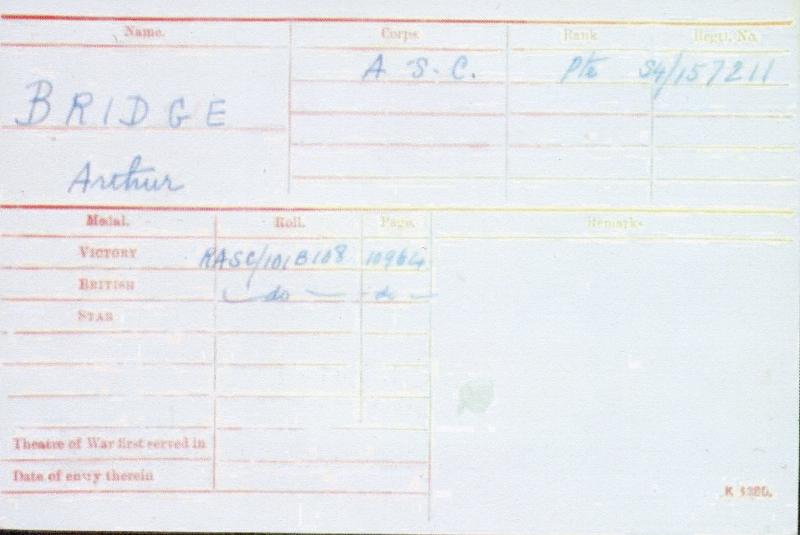 Name. Corps. Rank Regtl. No.
A. S. C. Pte S4/157211
BRIDGE
Arthur
Medal. Roll. Page. Remarks
VICTORY RASC/101B108 10964
BRITISH do do
STAR
Theatre of War first served in
Date of entry therein